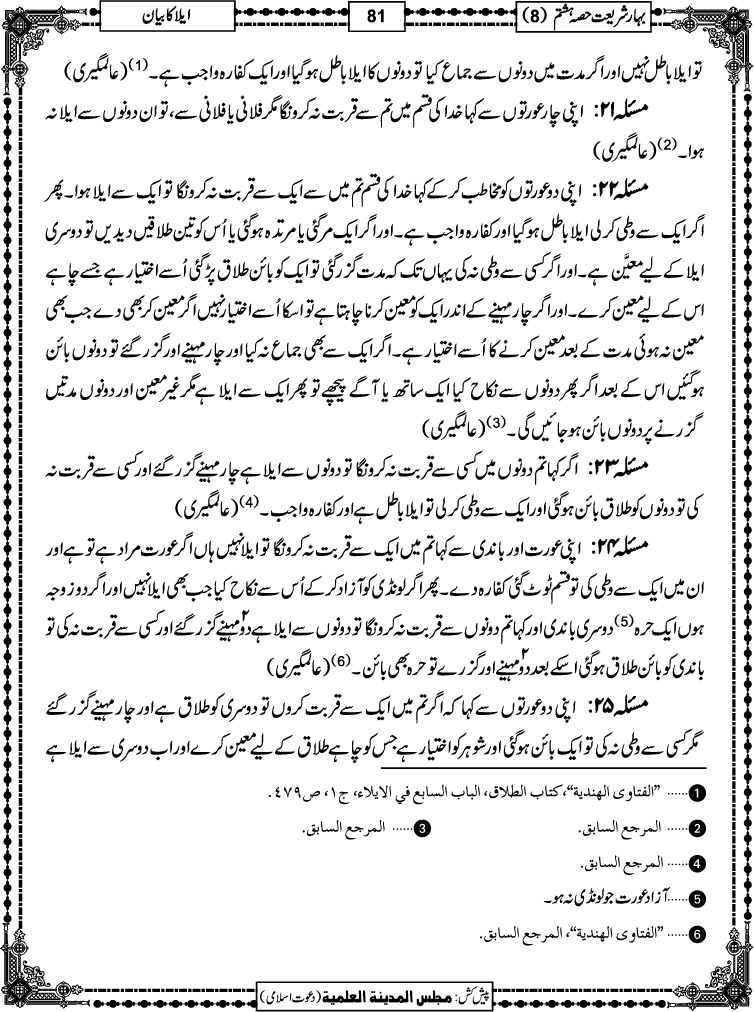 بہارِ شریعت حصہ ہشتم (8)
81
ایلا کا بیان
تو ایلا باطل نہیں اور اگر مدت میں دونوں سے جماع کیا تو دونوں کا ایلا باطل ہوگیا اور ایک کفارہ واجب ہے۔(1) (عالمگیری)
مسئلہ ۲۱: اپنی چار عورتوں سے کہا خدا کی قسم میں تم سے قربت نہ کرونگا مگر فلانی یا فلانی سے، تو ان دونوں سے ایلا نہ
ہوا۔(2) (عالمگیری)
مسئلہ ۲۲: اپنی دو عورتوں کو مخاطب کرکے کہا خدا کی قسم تم میں سے ایک سے قربت نہ کرونگا تو ایک سے ایلا ہوا۔ پھر
اگر ایک سے وطی کرلی ایلا باطل ہوگیا اور کفارہ واجب ہے۔ اور اگر ایک مرگئی یا مرتدہ ہوگئی یا اُس کو تین طلاقیں دیدیں تو دوسری
ایلا کے لیے معیَّن ہے۔ اور اگر کسی سے وطی نہ کی یہاں تک کہ مدت گزر گئی تو ایک کو بائن طلاق پڑگئی اُسے اختیار ہے جسے چاہے
اس کے لیے معین کرے۔ اور اگر چار مہینے کے اندر ایک کو معین کرنا چاہتا ہے تو اسکا اُسے اختیار نہیں اگر معین کر بھی دے جب بھی
معین نہ ہوئی مدت کے بعد معین کرنے کا اُسے اختیار ہے۔ اگر ایک سے بھی جماع نہ کیا اور چار مہینے اور گزر گئے تو دونوں بائن
ہوگئیں اس کے بعد اگر پھر دونوں سے نکاح کیا ایک ساتھ یا آگے پیچھے تو پھر ایک سے ایلا ہے مگر غیر معین اور دونوں مدتیں
گزرنے پر دونوں بائن ہوجائیں گی۔(3) (عالمگیری)
مسئلہ ۲۳: اگر کہا تم دونوں میں کسی سے قربت نہ کرونگا تو دونوں سے ایلا ہے چار مہینے گزر گئے اور کسی سے قربت نہ
کی تو دونوں کو طلاق بائن ہوگئی اور ایک سے وطی کرلی تو ایلا باطل ہے اور کفارہ واجب۔(4) (عالمگیری)
مسئلہ ۲۴: اپنی عورت اور باندی سے کہا تم میں ایک سے قربت نہ کرونگا تو ایلا نہیں ہاں اگر عورت مراد ہے تو ہے اور
ان میں ایک سے وطی کی تو قسم ٹوٹ گئی کفارہ دے۔ پھر اگر لونڈی کو آزاد کرکے اُس سے نکاح کیا جب بھی ایلا نہیں اور اگر دو زوجہ
ہوں ایک حرہ(5) دوسری باندی اور کہا تم دونوں سے قربت نہ کرونگا تو دونوں سے ایلا ہے دو۲ مہینے گزر گئے اور کسی سے قربت نہ کی تو
باندی کو بائن طلاق ہوگئی اسکے بعد دو۲ مہینے اور گزرے تو حرہ بھی بائن۔(6) (عالمگیری)
مسئلہ ۲۵: اپنی دو عورتوں سے کہا کہ اگر تم میں ایک سے قربت کروں تو دوسری کو طلاق ہے اور چار مہینے گزر گئے
مگر کسی سے وطی نہ کی تو ایک بائن ہوگئی اور شوہر کو اختیار ہے جس کو چاہے طلاق کے لیے معین کرے اور اب دوسری سے ایلا ہے
1 ...... ”الفتاوی الهندية“، کتاب الطلاق، الباب السابع في الايلاء، ج١، ص٤٧٩.
2 ...... المرجع السابق. 3 ...... المرجع السابق.
4 ...... المرجع السابق.
5 ...... آزاد عورت جو لونڈی نہ ہو۔
6 ...... ”الفتاوی الهندية“، المرجع السابق.
پیش کش: مجلس المدينة العلمية (دعوت اسلامی)